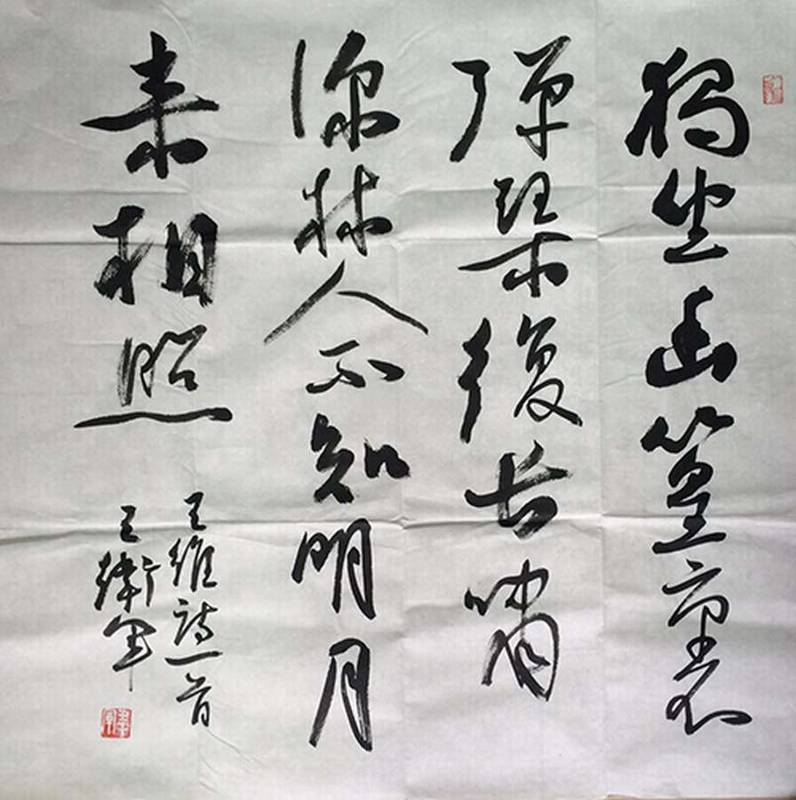 獨坐幽篁裏
彈琴復長嘯
深林人不知明月
来相照
王維詩一首
王衛軍